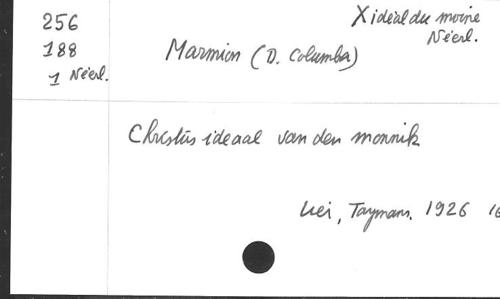 256
188
1 Néerl.
X idéal du moine
Néerl.
Marmion (D. Columba)
Christus ideaal van den monnik
Lei, Taymans. 1926 16